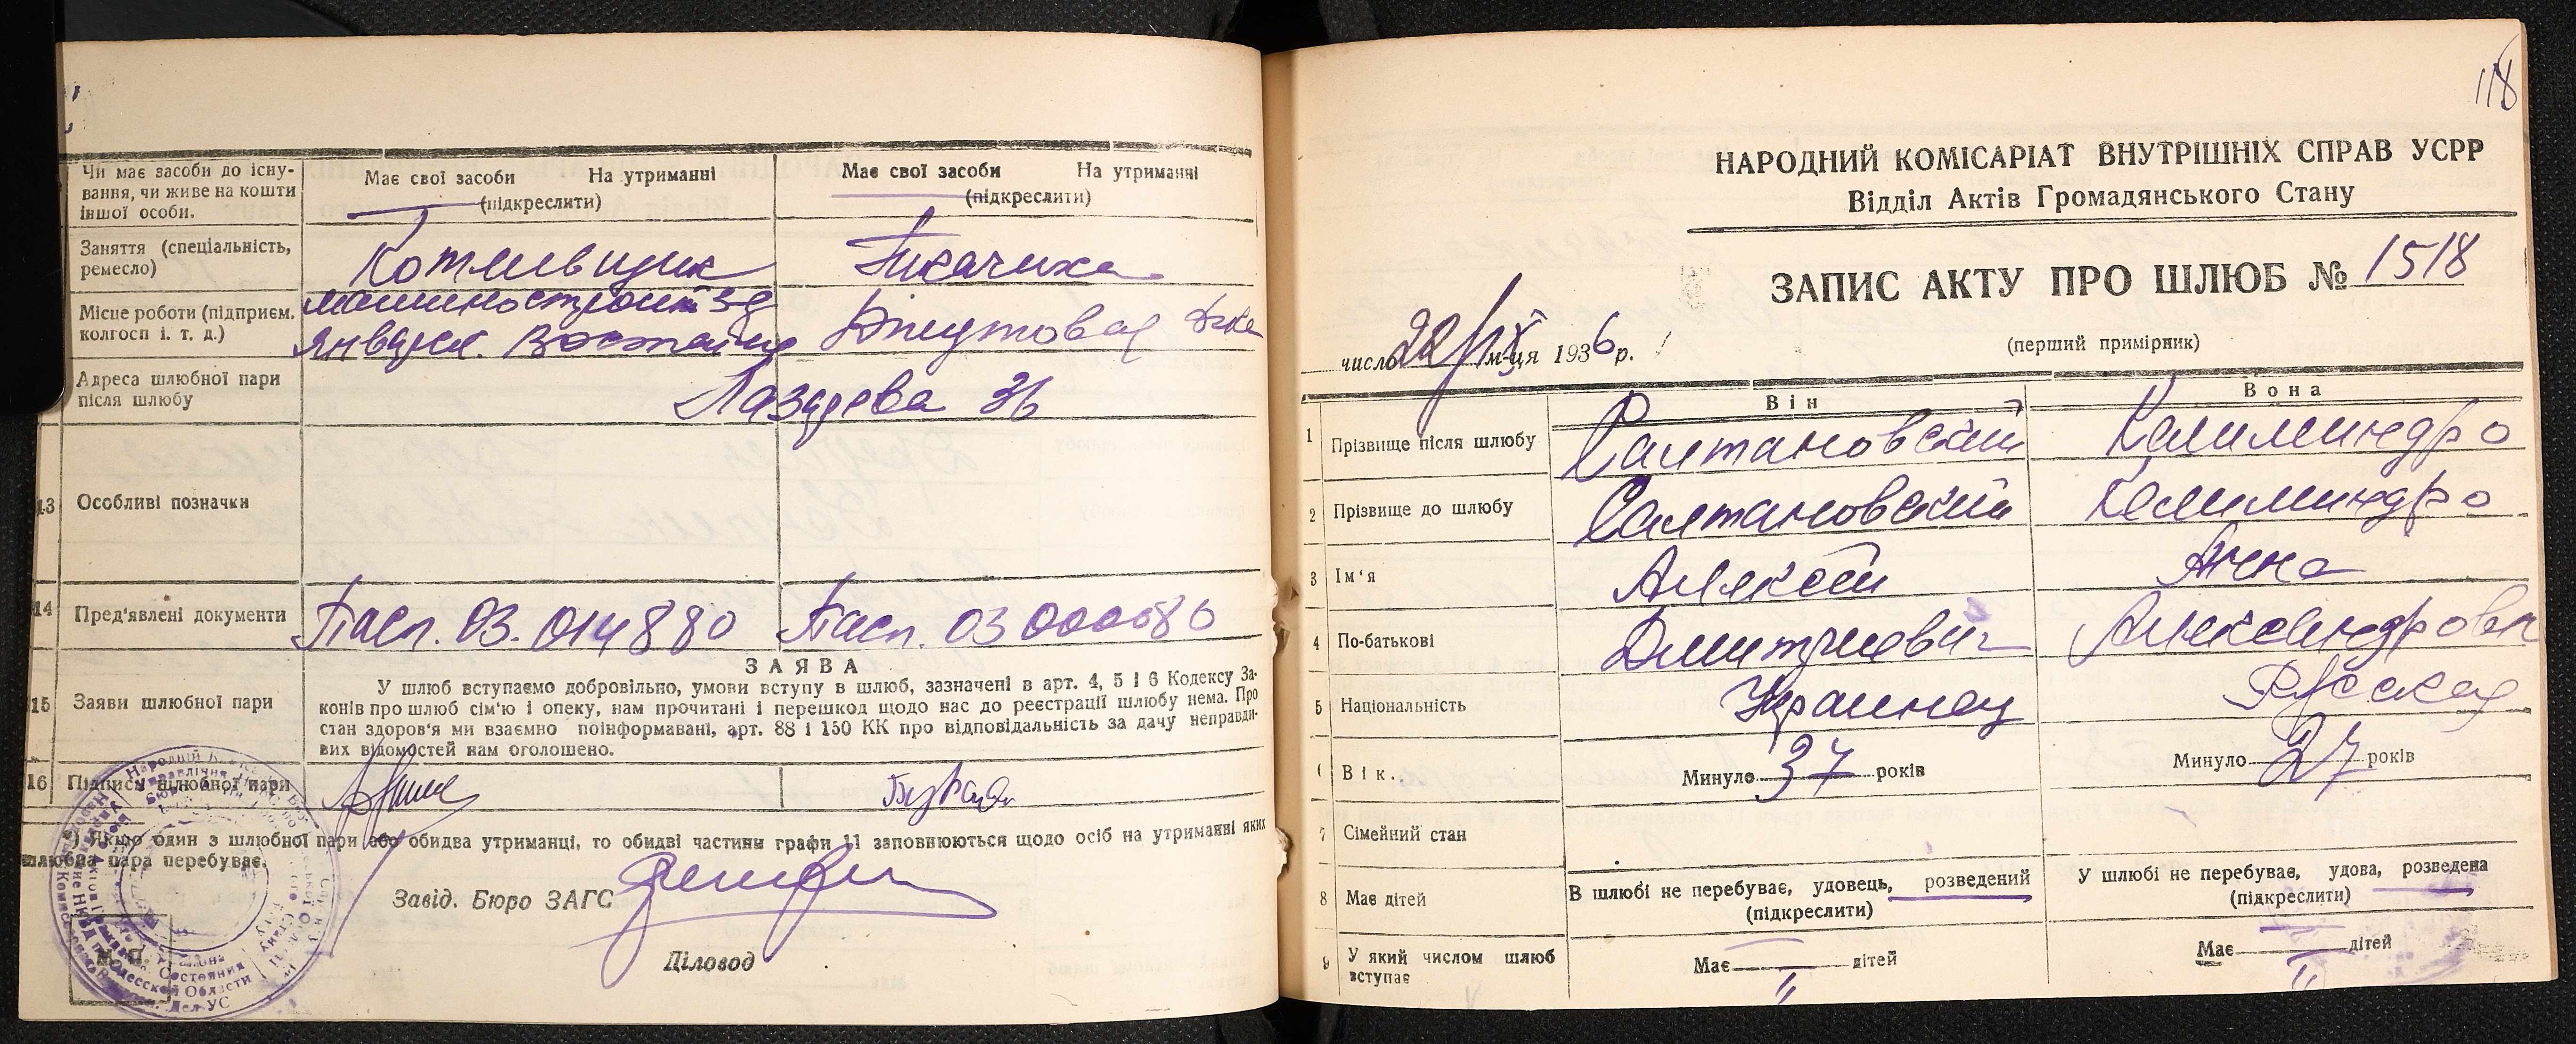 Чи має засоби до існу-
вання, чи живе на кошти
іншої особи.
Має свої засоби На утриманні
(підкреслити)
Має свої засоби На утриманні
(підкреслити)
Заняття (спеціальність,
ремесло)
Котельщик
Ткачиха
Місце роботи (підприєм.
колгосп і. т. д.)
Январск. Восстания
Джутовая
Адреса шлюбної пари
після шлюбу
Лазарева 36
13 Особливі позначки
14 Пред'явлені документи
Пасп. 03. 014880
Пасп. 03 000686
15 Заяви шлюбної пари
ЗАЯВА
У шлюб вступаємо добровільно, умови вступу в шлюб, зазначені в арт. 4, 5 і 6 Кодексу За-
конів про шлюб сім'ю і опеку, нам прочитані і перешкод щодо нас до реєстрації шлюбу нема. Про
стан здоров'я ми взаємно поінформавані, арт. 88 і 150 КК про відповідальність за дачу неправди-
вих відомостей нам оголошено.
16 Підписи шлюбної пари
*) Якщо один з шлюбної пари або обидва утриманці, то обидві частини графи 11 заповнюються щодо осіб на утриманні яких
шлюбна пара перебуває.
Завід. Бюро ЗАГС
Діловод
М. П.
118
НАРОДНИЙ КОМІСАРІАТ ВНУТРІШНІХ СПРАВ УСРР
Відділ Актів Громадянського Стану
ЗАПИС АКТУ ПРО ШЛЮБ № 1518
(перший примірник)
число 22/IX м-ця 1936 р.
Він
Вона
1 Прізвище після шлюбу
Салтановский
Калиминдро
2 Прізвище до шлюбу
Салтановский
Калиминдро
3 Ім'я
Алексей
Анна
4 По-батькові
Дмитриевич
Александровн
5 Національність
Украинец
Русская
6 Вік.
Минуло 37 років
Минуло 27 років
7 Сімейний стан
8 Має дітей
В шлюбі не перебуває, удовець, розведений
(підкреслити)
У шлюбі не перебуває, удова, розведена
(підкреслити)
9 У який числом шлюб
вступає
Має — дітей
II
Має — дітей
II